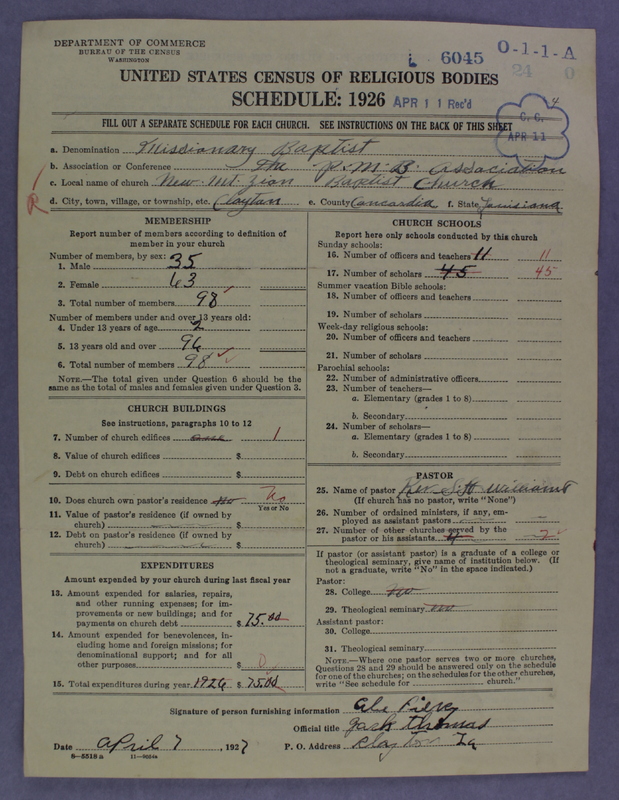 DEPARTMENT OF COMMERCE
BUREAU OF THE CENSUS
WASHINGTON
6045
O-1-1-A
24 0
UNITED STATES CENSUS OF RELIGIOUS BODIES
SCHEDULE: 1926 APR 11 Rec'd
C. C.
APR 11
4
FILL OUT A SEPARATE SCHEDULE FOR EACH CHURCH. SEE INSTRUCTIONS ON THE BACK OF THIS SHEET
a. Denomination Missionary Baptist
b. Association or Conference The P. M. B. Association
c. Local name of church New Mt. Zion Baptist Church
d. City, town, village, or township, etc. Clayton e. County Concordia f. State Louisiana
MEMBERSHIP
Report number of members according to definition of
member in your church
Number of members, by sex:
1. Male 35
2. Female 63
3. Total number of members 98
Number of members under and over 13 years old:
4. Under 13 years of age 2
5. 13 years old and over 96
6. Total number of members 98
NOTE.—The total given under Question 6 should be the
same as the total of males and females given under Question 3.
CHURCH BUILDINGS
See instructions, paragraphs 10 to 12
7. Number of church edifices one 1
8. Value of church edifices $
9. Debt on church edifices $
10. Does church own pastor's residence No No
Yes or No
11. Value of pastor's residence (if owned by
church) $
12. Debt on pastor's residence (if owned by
church) $
EXPENDITURES
Amount expended by your church during last fiscal year
13. Amount expended for salaries, repairs,
and other running expenses; for im-
provements or new buildings; and for
payments on church debt $ 75.00
14. Amount expended for benevolences, in-
cluding home and foreign missions; for
denominational support; and for all
other purposes $ 0
15. Total expenditures during year 1926 $ 75.00
CHURCH SCHOOLS
Report here only schools conducted by this church
Sunday schools:
16. Number of officers and teachers 11 11
17. Number of scholars 45 45
Summer vacation Bible schools:
18. Number of officers and teachers
19. Number of scholars
Week-day religious schools:
20. Number of officers and teachers
21. Number of scholars
Parochial schools:
22. Number of administrative officers
23. Number of teachers—
a. Elementary (grades 1 to 8)
b. Secondary
24. Number of scholars—
a. Elementary (grades 1 to 8)
b. Secondary
PASTOR
25. Name of pastor Rev. Williams
(If church has no pastor, write "None")
26. Number of ordained ministers, if any, em-
ployed as assistant pastors
27. Number of other churches served by the
pastor or his assistants 4 2
If pastor (or assistant pastor) is a graduate of a college or
theological seminary, give name of institution below. (If
not a graduate, write "No" in the space indicated.)
Pastor:
28. College no
29. Theological seminary no
Assistant pastor:
30. College
31. Theological seminary
NOTE.—Where one pastor serves two or more churches,
Questions 28 and 29 should be answered only on the schedule
for one of the churches; on the schedules for the other churches,
write "See schedule for church."
Signature of person furnishing information Abe
Official title Jack Thomas
Date April 7, 1927 P. O. Address Clayton La
8-5518 a